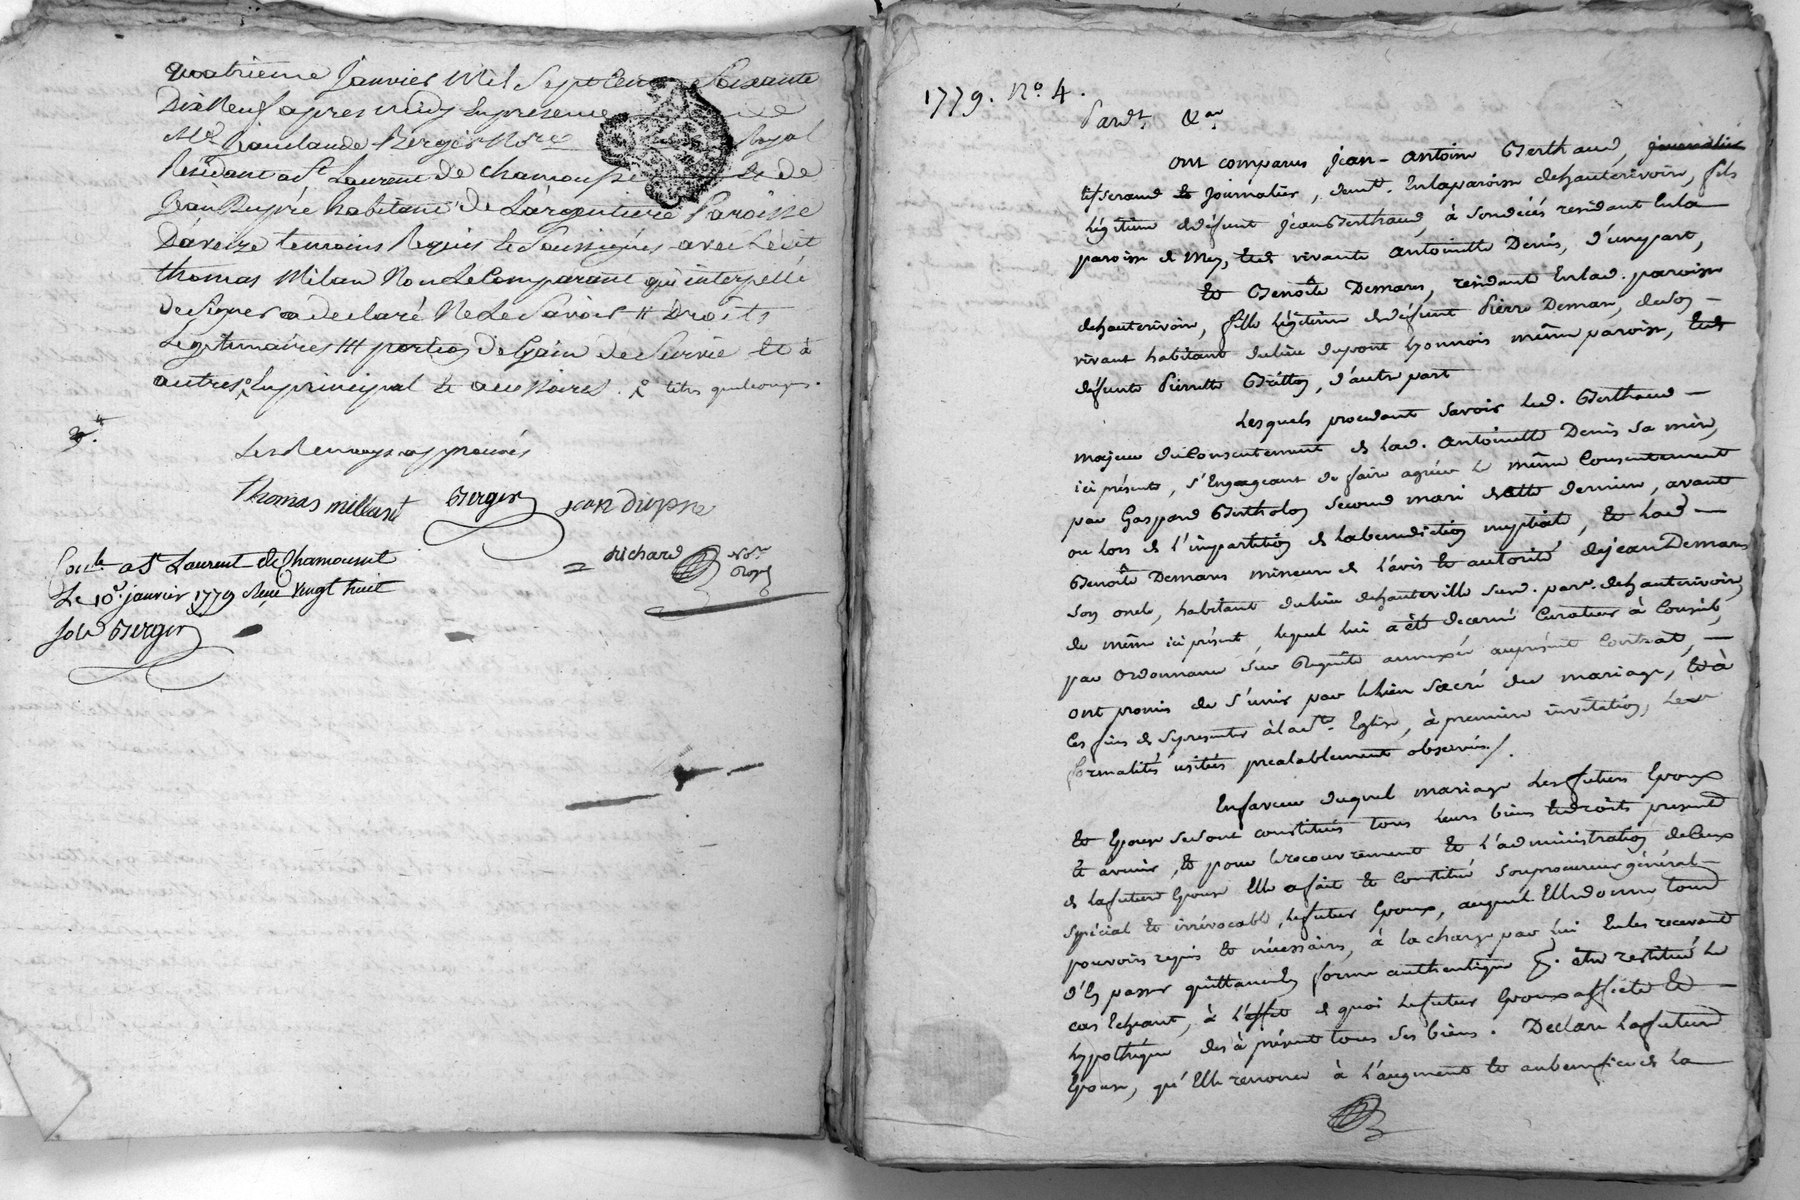 quatrieme Janvier Mil Sept Cent Soixante
Dix Neuf apres Midy En presence de
Me Jean claude Berger Nore Royal
Residant a St Laurent de Chamousset Et de
Jean Dupré habitant de L'argentiere Paroisse
D'aveize temoins Requis Et Soussignés avec Ledit
thomas Milan Non Le Comparant qui interpellé
de Signer a declaré Ne Le Savoir // Droits
Legitimaires /// portion de Gain de Survie Et à
autres En principal Et accessoires. titres quelconques.
Les Renvoys approuvés
Thomas millant Berger jean dupre
Richard Nore Royal
Conlé a St Laurent de Chamousset
Le 10e janvier 1779 Reçu Vingt huit
sols Berger
1779. No. 4.
Pardt &ar
ont comparus Jean-Antoine Berthaud, journalier
tisserand Et Journalier, demt. En la paroisse de hauterivoire, fils
légitime de défunt Jean Berthaud, à Son décès residant En la
paroisse de Mey, Et de vivante Antoinette Denis, d'une part,
Et Benoîte Demare, residante En lad. paroisse
de hauterivoire, fille légitime de défunt Pierre Demare, de Son
vivant habitant du lieu du pont Lyonnois même paroisse, Et de
défunte Pierrette Brillon, d'autre part
Lesquels procedant Savoir led. Berthaud
majeur du Consentement de lad. Antoinette Denis Sa mère,
ici présente, S'Engageant de faire agréer le même Consentement
par Gaspard Bertholon Second mari de cette derniere, avant
ou lors de l'impartition de la benediction nuptiale, Et lad.
Benoîte Demare mineure de l'avis Et autorité de jean Demare
Son oncle, habitant du lieu de hauteville Sud. par. de hauterivoire,
de même ici présent, lequel lui a été décerné Curateur à Conseil,
par ordonnance Sur Requête annexée au présent Contrat,
ont promis de S'unir par le lien Sacré du mariage, Et à
Ces fins de Se presenter à lad. Eglise, à premiere invitation, Les
formalités usitées prealablement observées /.
En faveur duquel mariage Les futurs Epoux
Et Epouse Se Sont constitués tous leurs biens Et droits presents
Et avenir, Et pour le recouvrement Et l'administration de Ceux
de la future Epouse Elle a fait Et Constitué Son procureur général
Spécial Et irrévocable, le futur Epoux, auquel Elle donne tous
pouvoirs requis Et nécessaires, à la charge par lui En les recevant
d'En passer quittance En forme authentique pr. être restitué le
cas Echeant, à l'effet de quoi le futur Epoux affecte Et
hypothéque dès à présent tous Ses biens. Declare la future
Epouse, qu'Elle renonce à l'augment Et au benefice de la